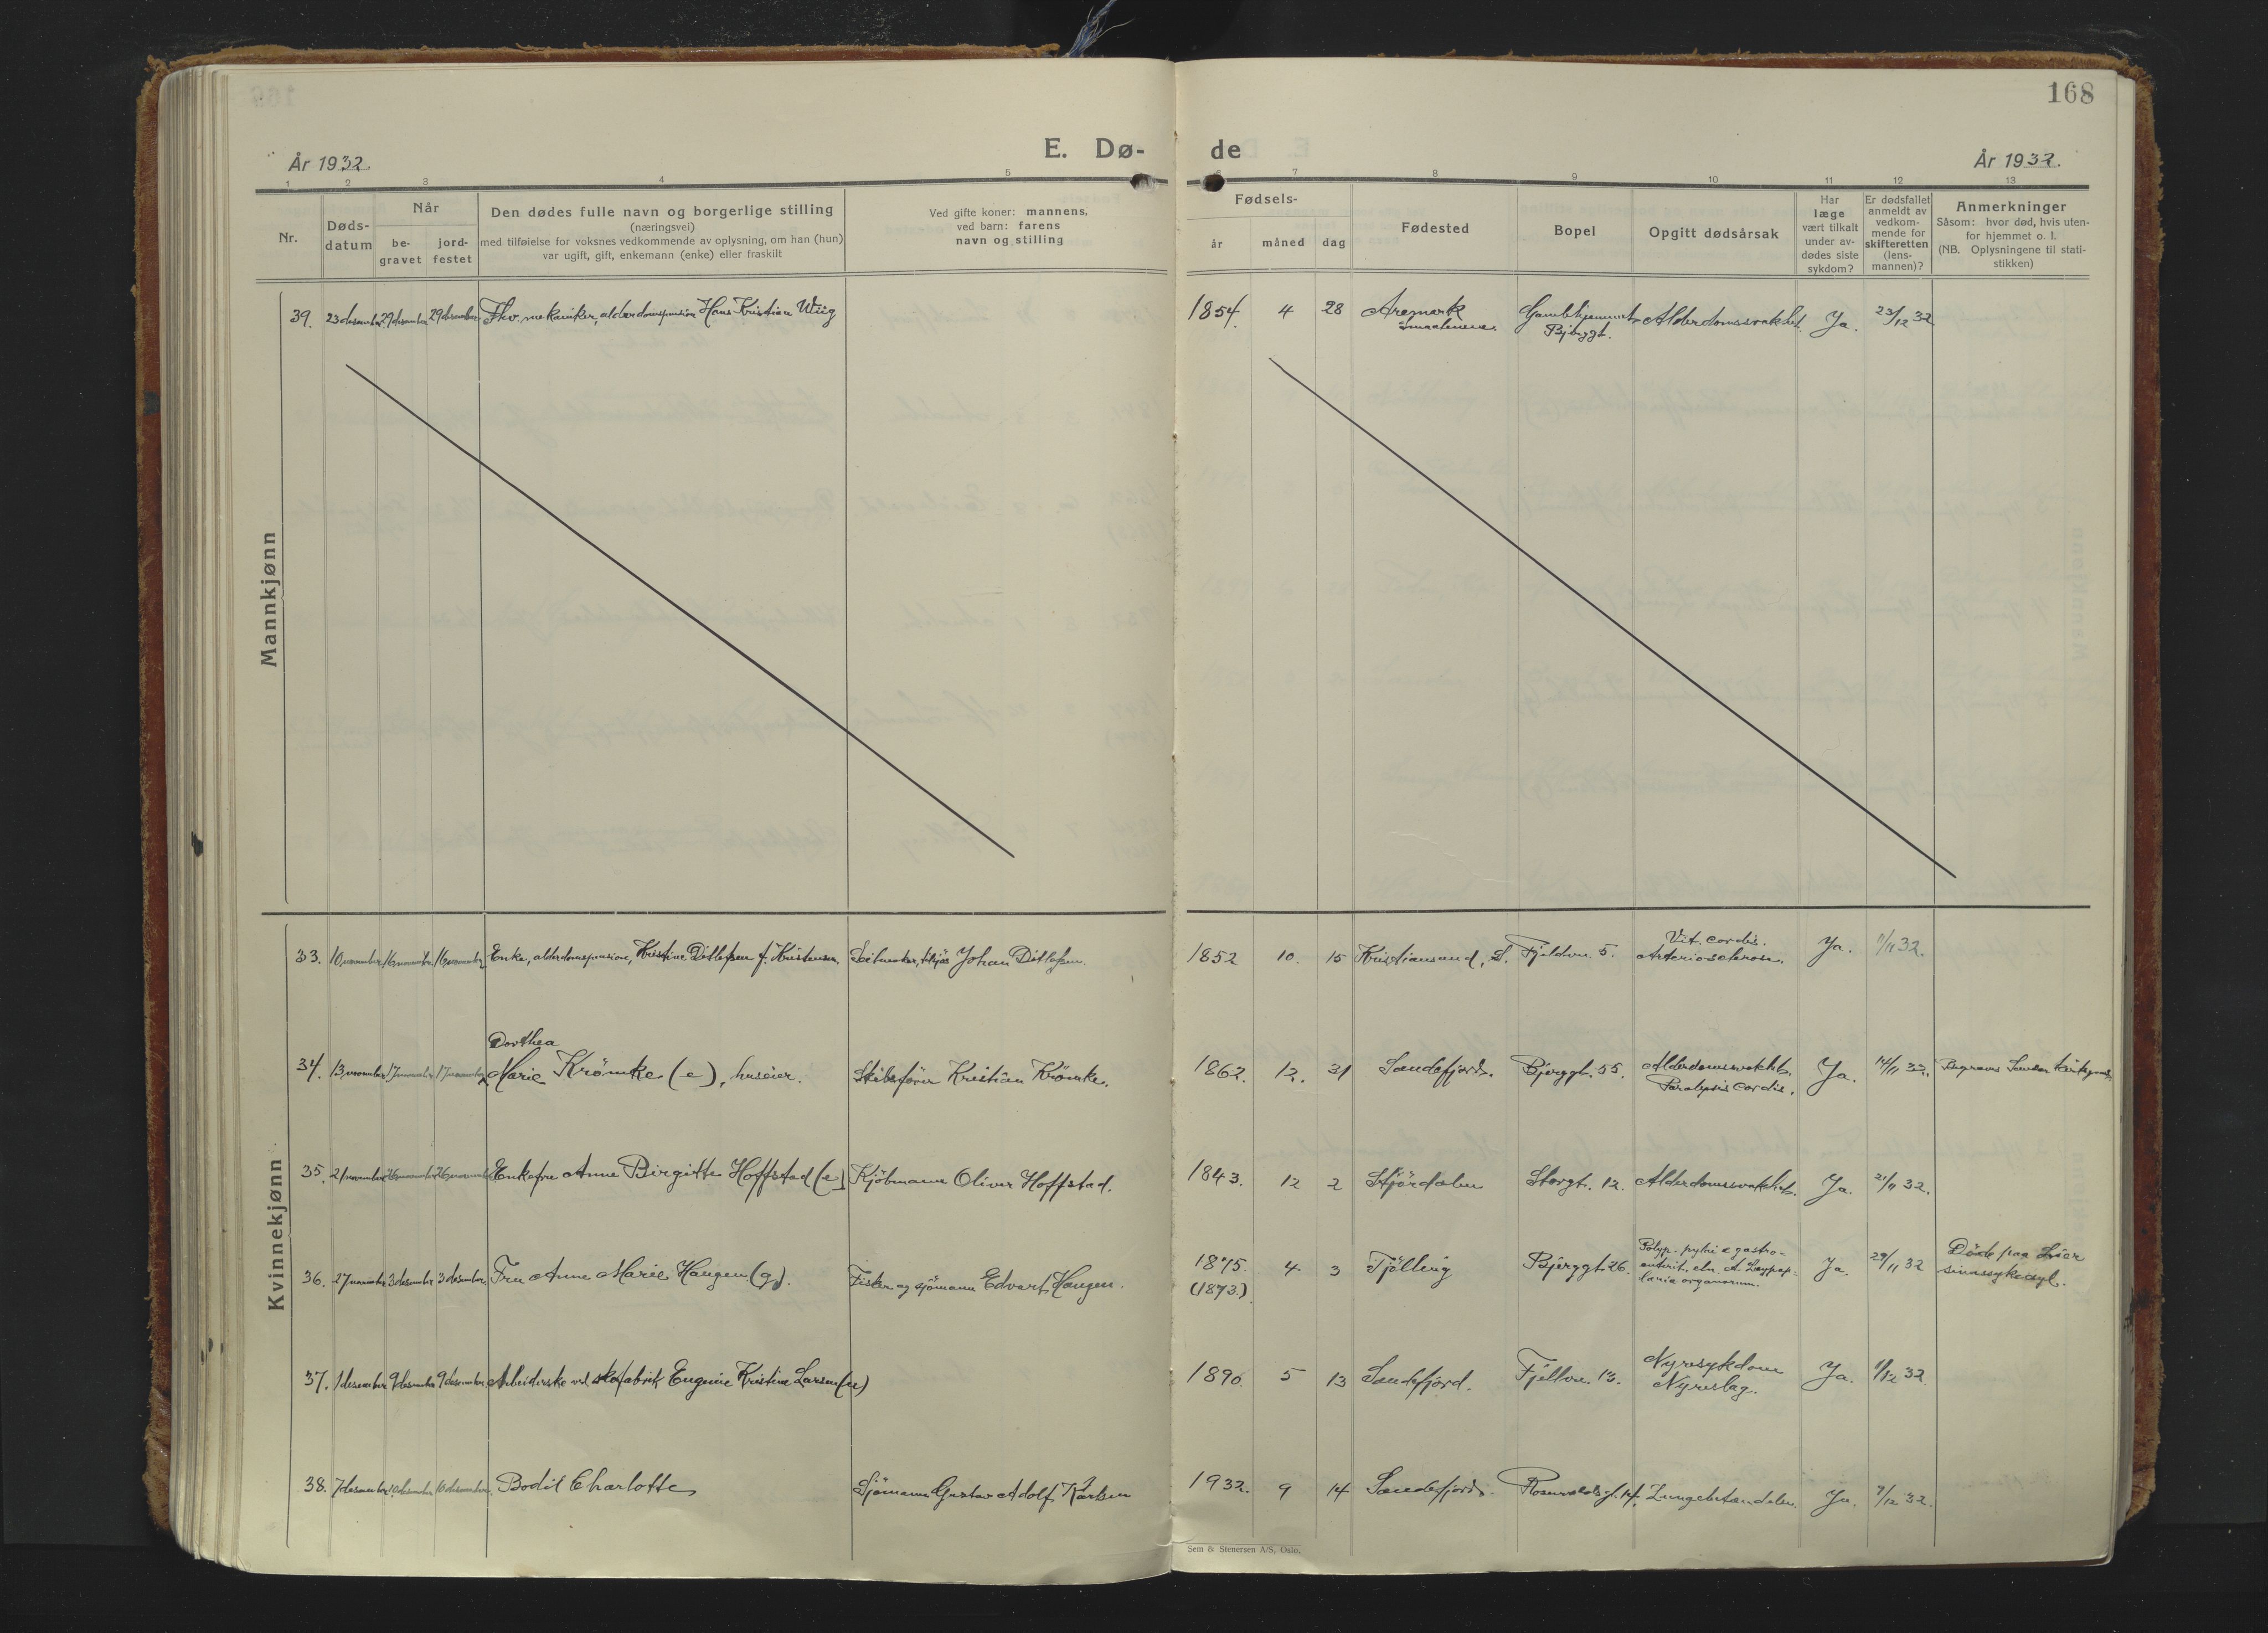 168
E. Dø- de
År 1932.
År 1932.
1 2 3 4 5 6 7 8 9 10 11 12 13
Nr.
Døds-
datum
Når
be-
gravet
jord-
festet
Den dødes fulle navn og borgerlige stilling
(næringsvei)
med tilføielse for voksnes vedkommende av oplysning, om han (hun)
var ugift, gift, enkemann (enke) eller fraskilt
Ved gifte koner: mannens,
ved barn: farens
navn og stilling
Fødsels-
år måned dag
Fødested
Bopel
Opgitt dødsårsak
Har
læge
vært tilkalt
under av-
dødes siste
sykdom?
Er dødsfallet
anmeldt av
vedkom-
mende for
skifteretten
(lens-
mannen)?
Anmerkninger
Såsom: hvor død, hvis uten-
for hjemmet o. l.
(NB. Oplysningene til stati-
stikken)
Mannkjønn
39. 23 desember 29 desember 29 desember Fhv. mekaniker, alderdomspension Hans Kristian Wiig 1854. 4 28 Aremark Gamlehjemmet Alderdomssvakhet. Ja. 23/12 32
Smaalenene. Bjerggt.
Kvinnekjønn
Vit. cordis.
33. 10 november 16 november 16 november Enke, alderdomspension, Kristine Ditlefsen f. Kristensen. Johan Ditlefsen. 1852 10. 15 Kristiansand, S. Fjeldvn. 5. Arteriosclerose. Ja. 32.
Dorthea
34. 13 november 17 november 17 november Marie Krömke (e), huseier. Skibsfører Kristian Krömke. 1862. 12. 31 Sandefjord. Bjerggt. 55. Alderdomssvakhet. Ja. 14/11 32. Begraves
Paralysis cordis.
35. 21 november 26 november 26 november Enkefru Anne Birgitte Hoffstad (e) Kjöbmann Oliver Hoffstad. 1843. 12 2 Stjördalen Storgt. 12. Alderdomssvakhet. Ja. 21/11 32.
36. 27 november 3 desember 3 desember Fru Anne Marie Haugen (g). Fisker og sjömann Edvart Haugen. 1875. 4 3 Tjölling Bjerggt. 26. Ja. 29/11 32 Döde paa Lier
(1873.) organorum. sinnssykeasyl.
37. 1 desember 9 desember 9 desember Arbeiderske ved skofabrik Eugenie Kristine Larsen (u) 1890. 5 13 Sandefjord. Fjellvn. 13. Nyresykdom Ja. 1/12 32.
Nyreslag.
38. 7 desember 10 desember 10 desember. Bodil Charlotte Sjömann Gustav Adolf Karlsen 1932. 9 14 Sandefjord. Lungebetændelse. Ja. 7/12 32.
Sem & Stenersen A/S, Oslo.